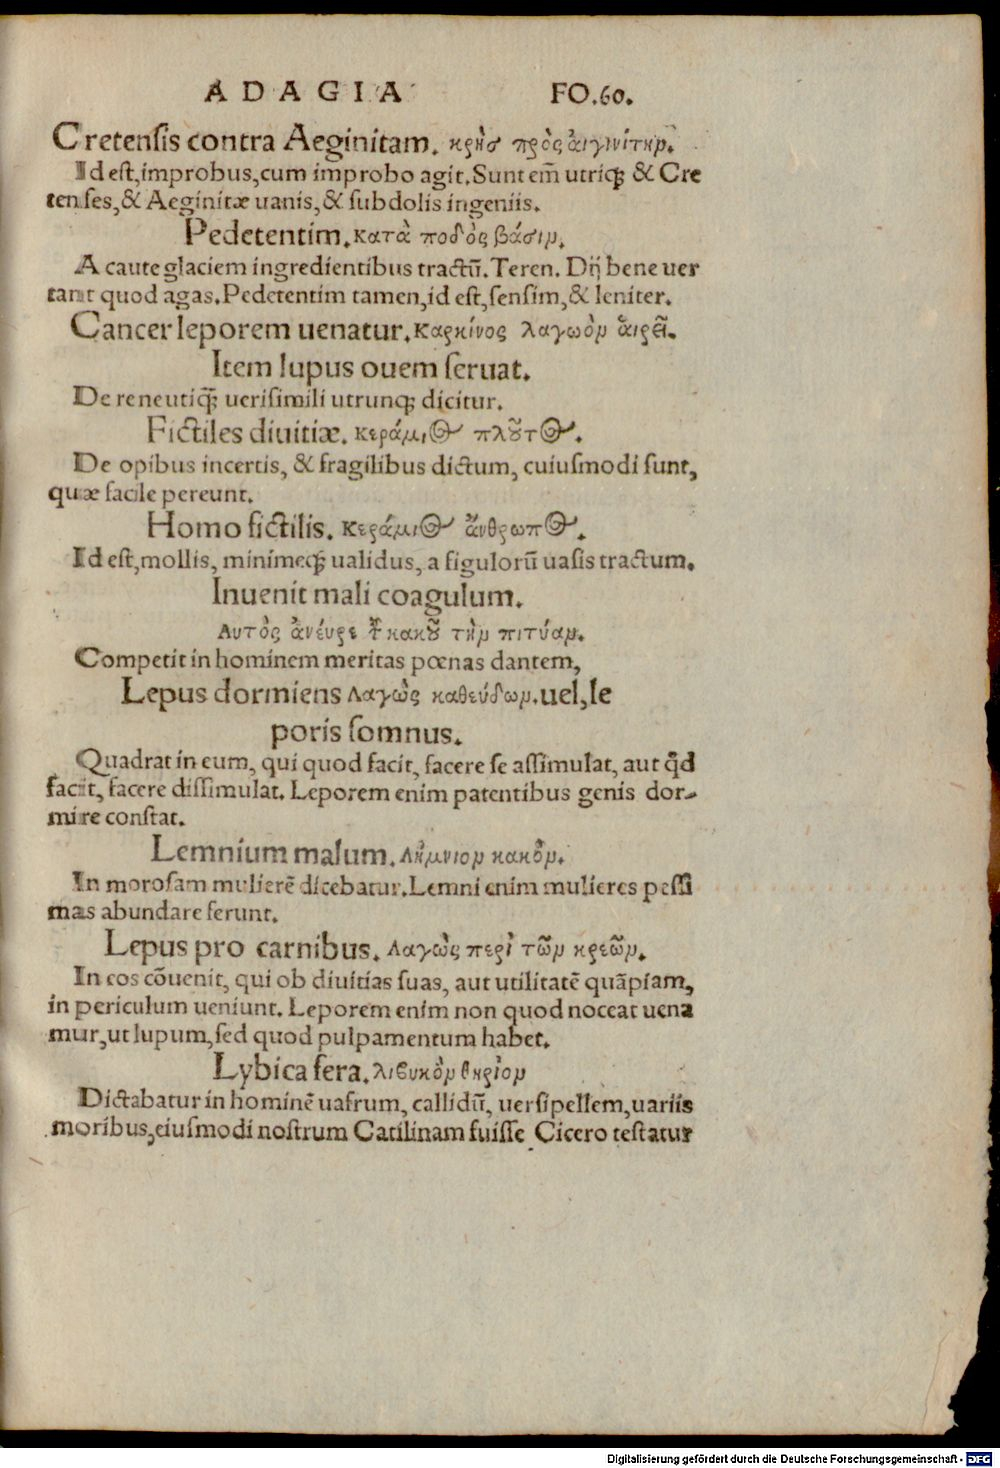 ADAGIA FO.60.
Cretensis contra Aeginitam. κρὴσ πρὸς ἀιγινίτην.
Id est, improbus, cum improbo agit. Sunt em̄ utriq; & Cre
tenses, & Aeginitæ uanis, & subdolis ingeniis.
Pedetentim. κατὰ ποδὸς βάσιν.
A caute glaciem ingredientibus tractū. Teren. Dij bene uer
tant quod agas. Pedetentim tamen, id est, sensim, & leniter.
Cancer leporem uenatur. Καρκίνος λαγωὸν ἁιρεῖ.
Item lupus ouem seruat.
De re neutiq̄; uerisimili utrunq; dicitur.
Fictiles diuitiæ. κεράμιος πλȣ̃τος.
De opibus incertis, & fragilibus dictum, cuiusmodi sunt,
quæ facile pereunt.
Homo fictilis. Κεράμιος ἄνθρωπος.
Id est, mollis, minimeq; ualidus, a figulorū uasis tractum.
Inuenit mali coagulum.
Αυτὸς ἀνέυρε τ͂ κακȣ͂ τὴν πιτύαν.
Competit in hominem meritas pœnas dantem,
Lepus dormiens Λαγὼς καθεύδων. uel, le
poris somnus.
Quadrat in eum, qui quod facit, facere se assimulat, aut qd̄
facit, facere dissimulat. Leporem enim patentibus genis dor-
mire constat.
Lemnium malum. Λήμνιον κακὸν.
In morosam mulierē dicebatur. Lemni enim mulieres pessi
mas abundare ferunt.
Lepus pro carnibus. Λαγὼς περὶ τῶν κρεῶν.
In eos cōuenit, qui ob diuitias suas, aut utilitatē quāpiam,
in periculum ueniunt. Leporem enim non quod noceat uena
mur, ut lupum, sed quod pulpamentum habet.
Lybica fera. λιϐυκὸν θηρίον
Dictabatur in hominē uafrum, callidū, uersipellem, uariis
moribus, eiusmodi nostrum Catilinam fuisse Cicero testatur
Digitalisierung gefördert durch die Deutsche Forschungsgemeinschaft - DFG